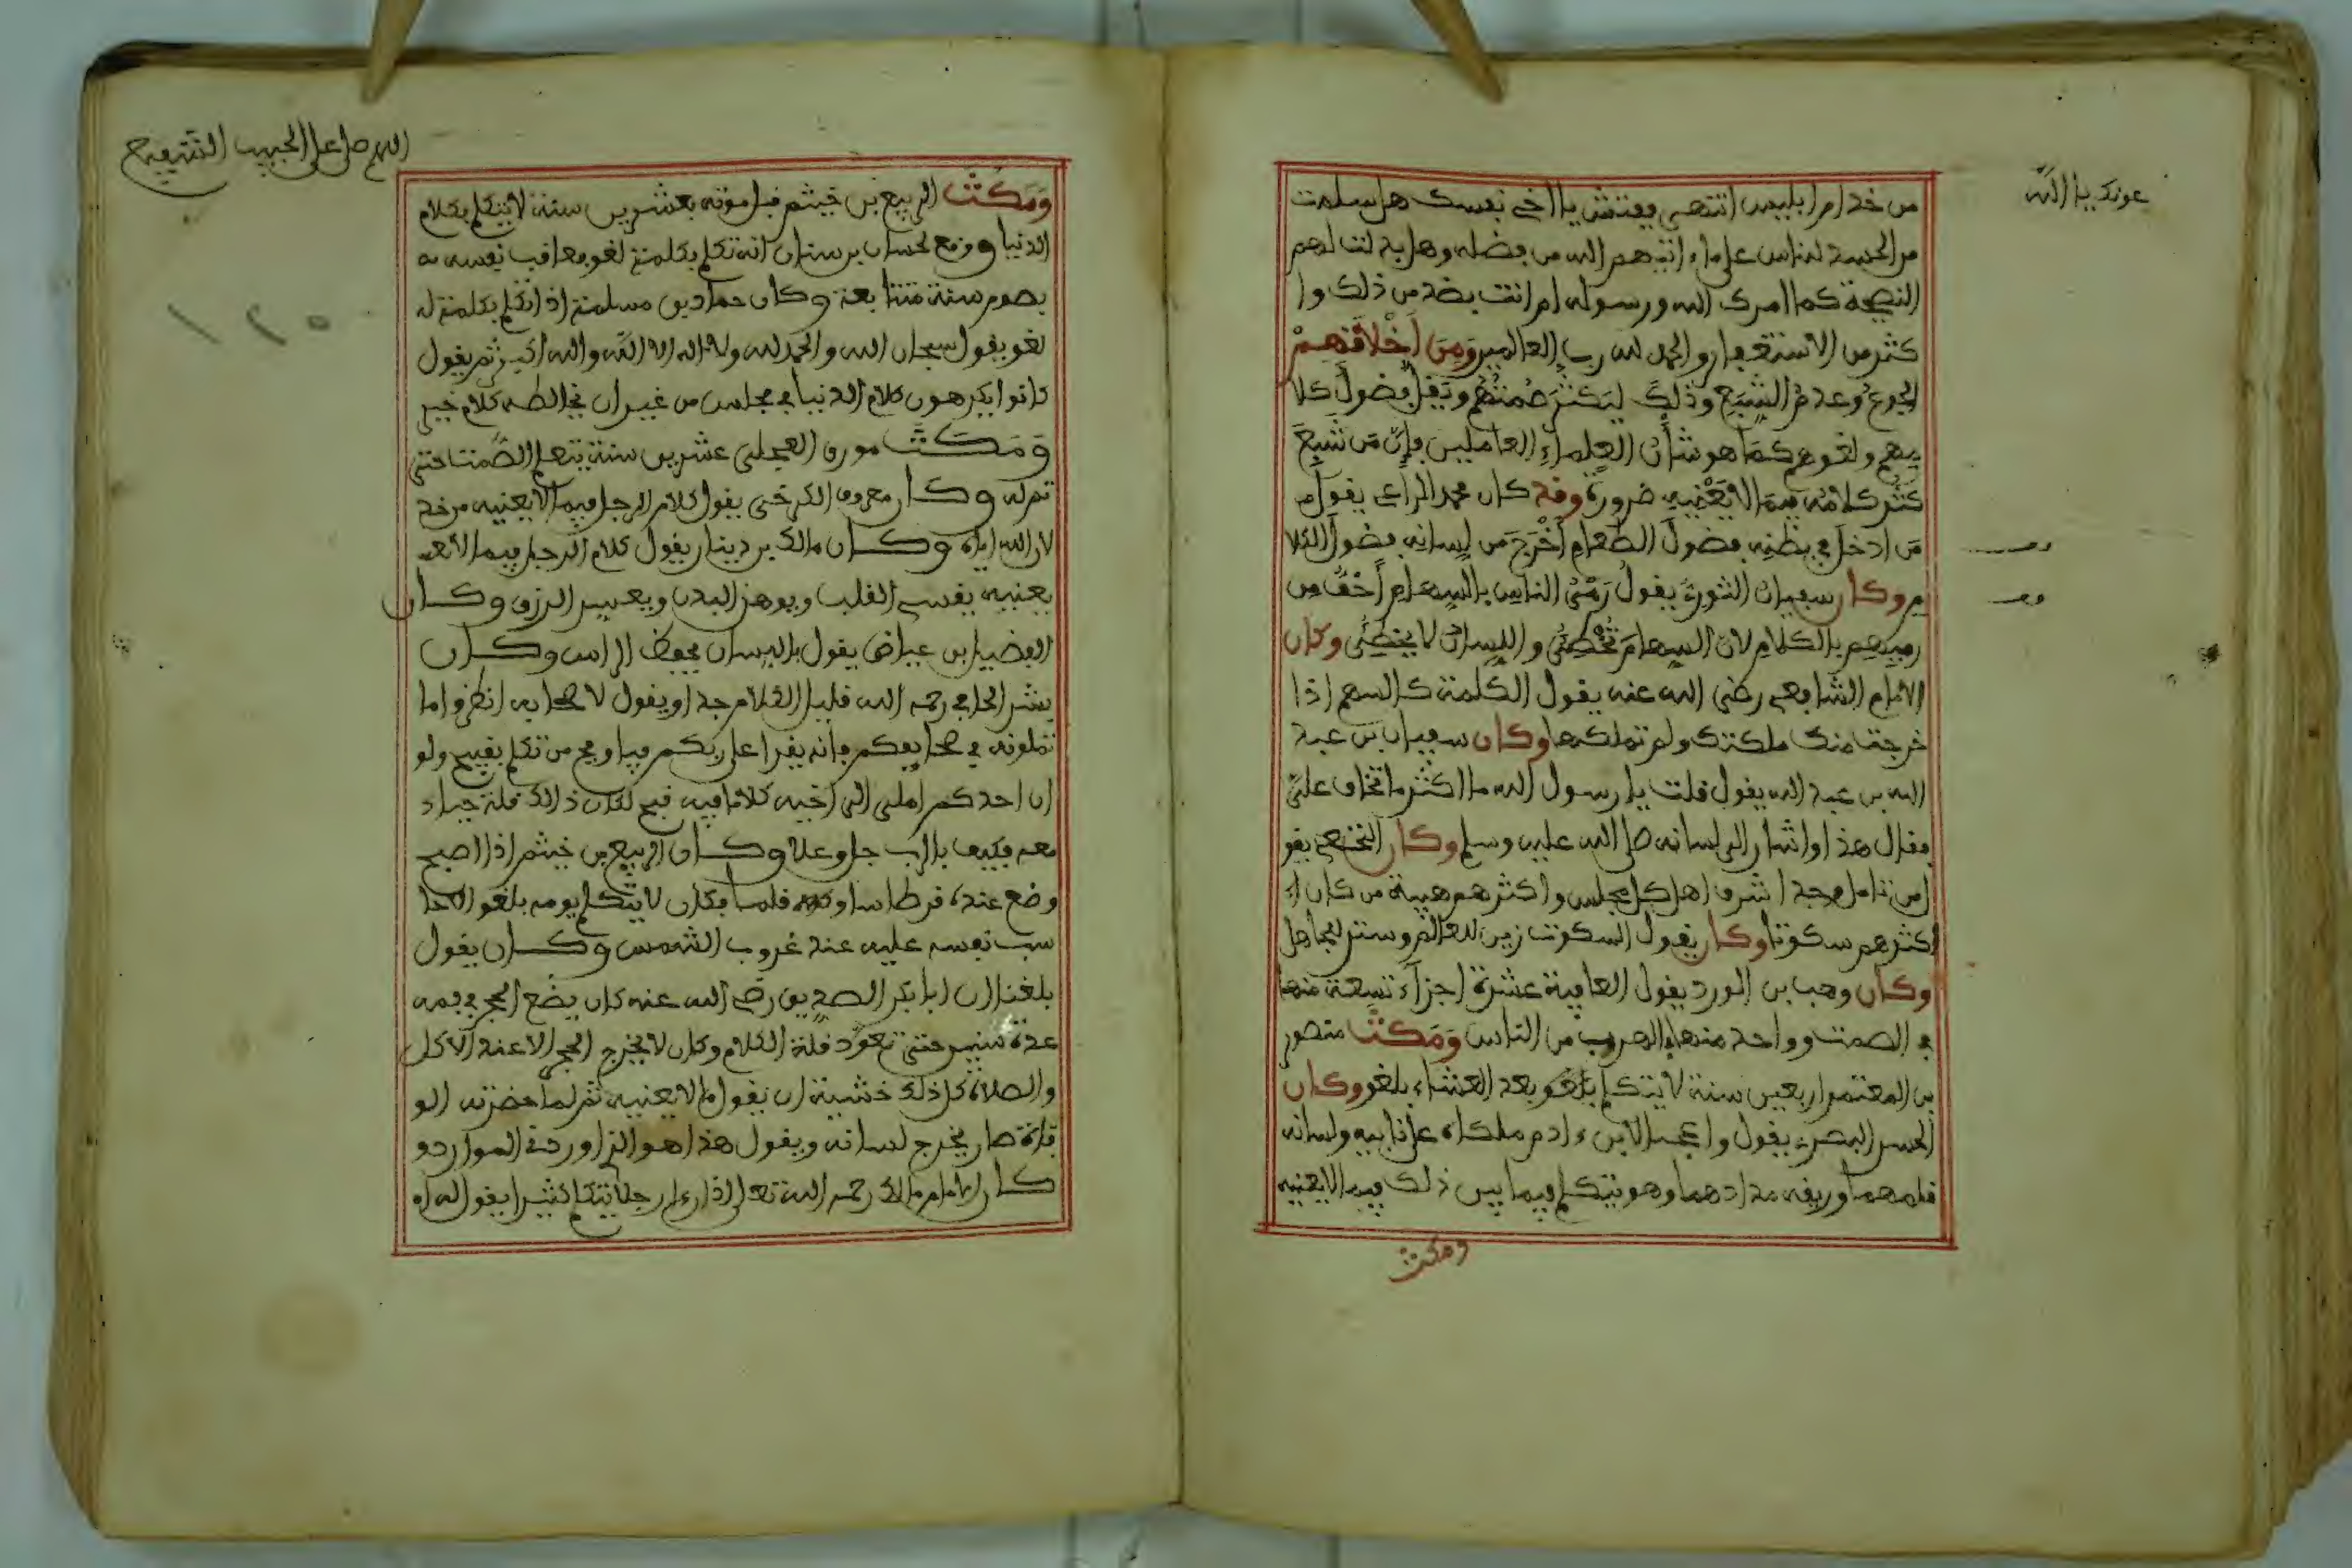 عونك يا الله
من خدام ابليس انتهى ففتش يا اخي نفسك هل سلمت
من الحسد للناس على ما اتيهم الله من فضله وهل بدلت لهم
النصيحة كما امرك الله ورسوله ام انت بضد من ذلك وا
كثر من الاستغفار والحمد لله رب العالمين وَمِنَ اَخْلَاقِهِمْ
الجوع وعدم الشبع وذلك ليكثر صمتهم ويقل فضول كلا
مهم ولغوهم كما هو شأن العلماء العاملين فإن من شبع
كثر كلامه فيما لا يعنيه ضرورة وقد كان محمد الراعي يقول
من ادخل في بطنه فضول الطعام أخرج من لسانه فضول الكلا
م وكان سفيان الثوري يقول رمي الناس بالسهام أخف من
رميهم بالكلام لان السهام تخطئ واللسان لا يخطئ وكان
الامام الشافعي رضي الله عنه يقول الكلمة كالسهم اذا
خرجت منك ملكتك ولم تملكها وكان سفيان بن عبد
الله بن عبد الله يقول قلت يا رسول الله ما اكثر ما تخاف علي
فقال هذا واشار الى لسانه صلى الله عليه وسلم وكان النخعي يقو
ل من تامل وجد اشرف اهل كل مجلس واكثرهم هيبة من كان
اكثرهم سكوتا وكان يقول السكوت زين للعالم وستر للجاهل
وكان وهب بن الورد يقول العافية عشرة اجزاء تسعة منها
في الصمت وواحد منها الهروب من الناس وَمَكَثَ منصور
بن المعتمر اربعين سنة لا يتكلم بلغو بعد العشاء بلغو وكان
الحسن البصري يقول واعجبا لابن ءادم ملكاه على نابيه ولسانه
قلمهما وريقه مدادهما وهو يتكلم فيما بين ذلك فيما لا يعنيه
ومكث
اللهم صل على الحبيب الشفيع
١٢٥
وَمَكَثَ الربيع بن خيثم قبل موته بعشرين سنة لا يتكلم بكلام
الدنيا ووقع لحسان بن سنان انه تكلم بكلمة لغو فعاقب نفسه
بصوم سنة متتابعة وكان حماد بن مسلمة اذا تكلم بكلمة
لغو يقول سبحان الله والحمد لله ولا اله الا الله والله اكبر ثم يقول
كانوا يكرهون كلام الدنيا في مجلس من غير ان يخالطه كلام خير
وَمَكَثَ مورق العجلي عشرين سنة يتعلم الصمت حتى
تم له وكان معروف الكرخي يقول كلام الرجل فيما لا يعنيه من خذ
لان الله اياه وكان مالك بن دينار يقول كلام الرجل فيما لا
يعنيه يقسي القلب ويوهن البدن ويعسر الرزق وكان
الفضيل بن عياض يقول باللسان يحفظ الراس وكان
بشر الحافي رحمه الله قليل الكلام جدا ويقول لاصحابه انظروا ما
تملونه في صحايفكم فانه يقرا على ربكم فيا ويح من تكلم بقبيح ولو
ان احدكم املى الى اخيه كلاما فيه قبح لكان ذالك قلة حياء
معه فكيف بالرب جل وعلا وكان الربيع بن خيثم اذا اصبح
وضع عنده قرطاسا وقلما فكان لا يتكلم يومه بلغو الا حا
سب نفسه عليه عند غروب الشمس وكان يقول
بلغنا ان ابا بكر الصديق رضي الله عنه كان يضع الحجر في فمه
عدة سنين حتى تعود قلة الكلام وكان لا يخرج الحجر الا عند الاكل
والصلاة كل ذلك خشية ان يقول ما لا يعنيه ثم لما حضرته الو
فاة صار يخرج لسانه ويقول هذا هو الذي اوردني الموارد و
كان الامام مالك رحمه الله تعالى اذا رءا رجلا يتكلم كثيرا يقول له